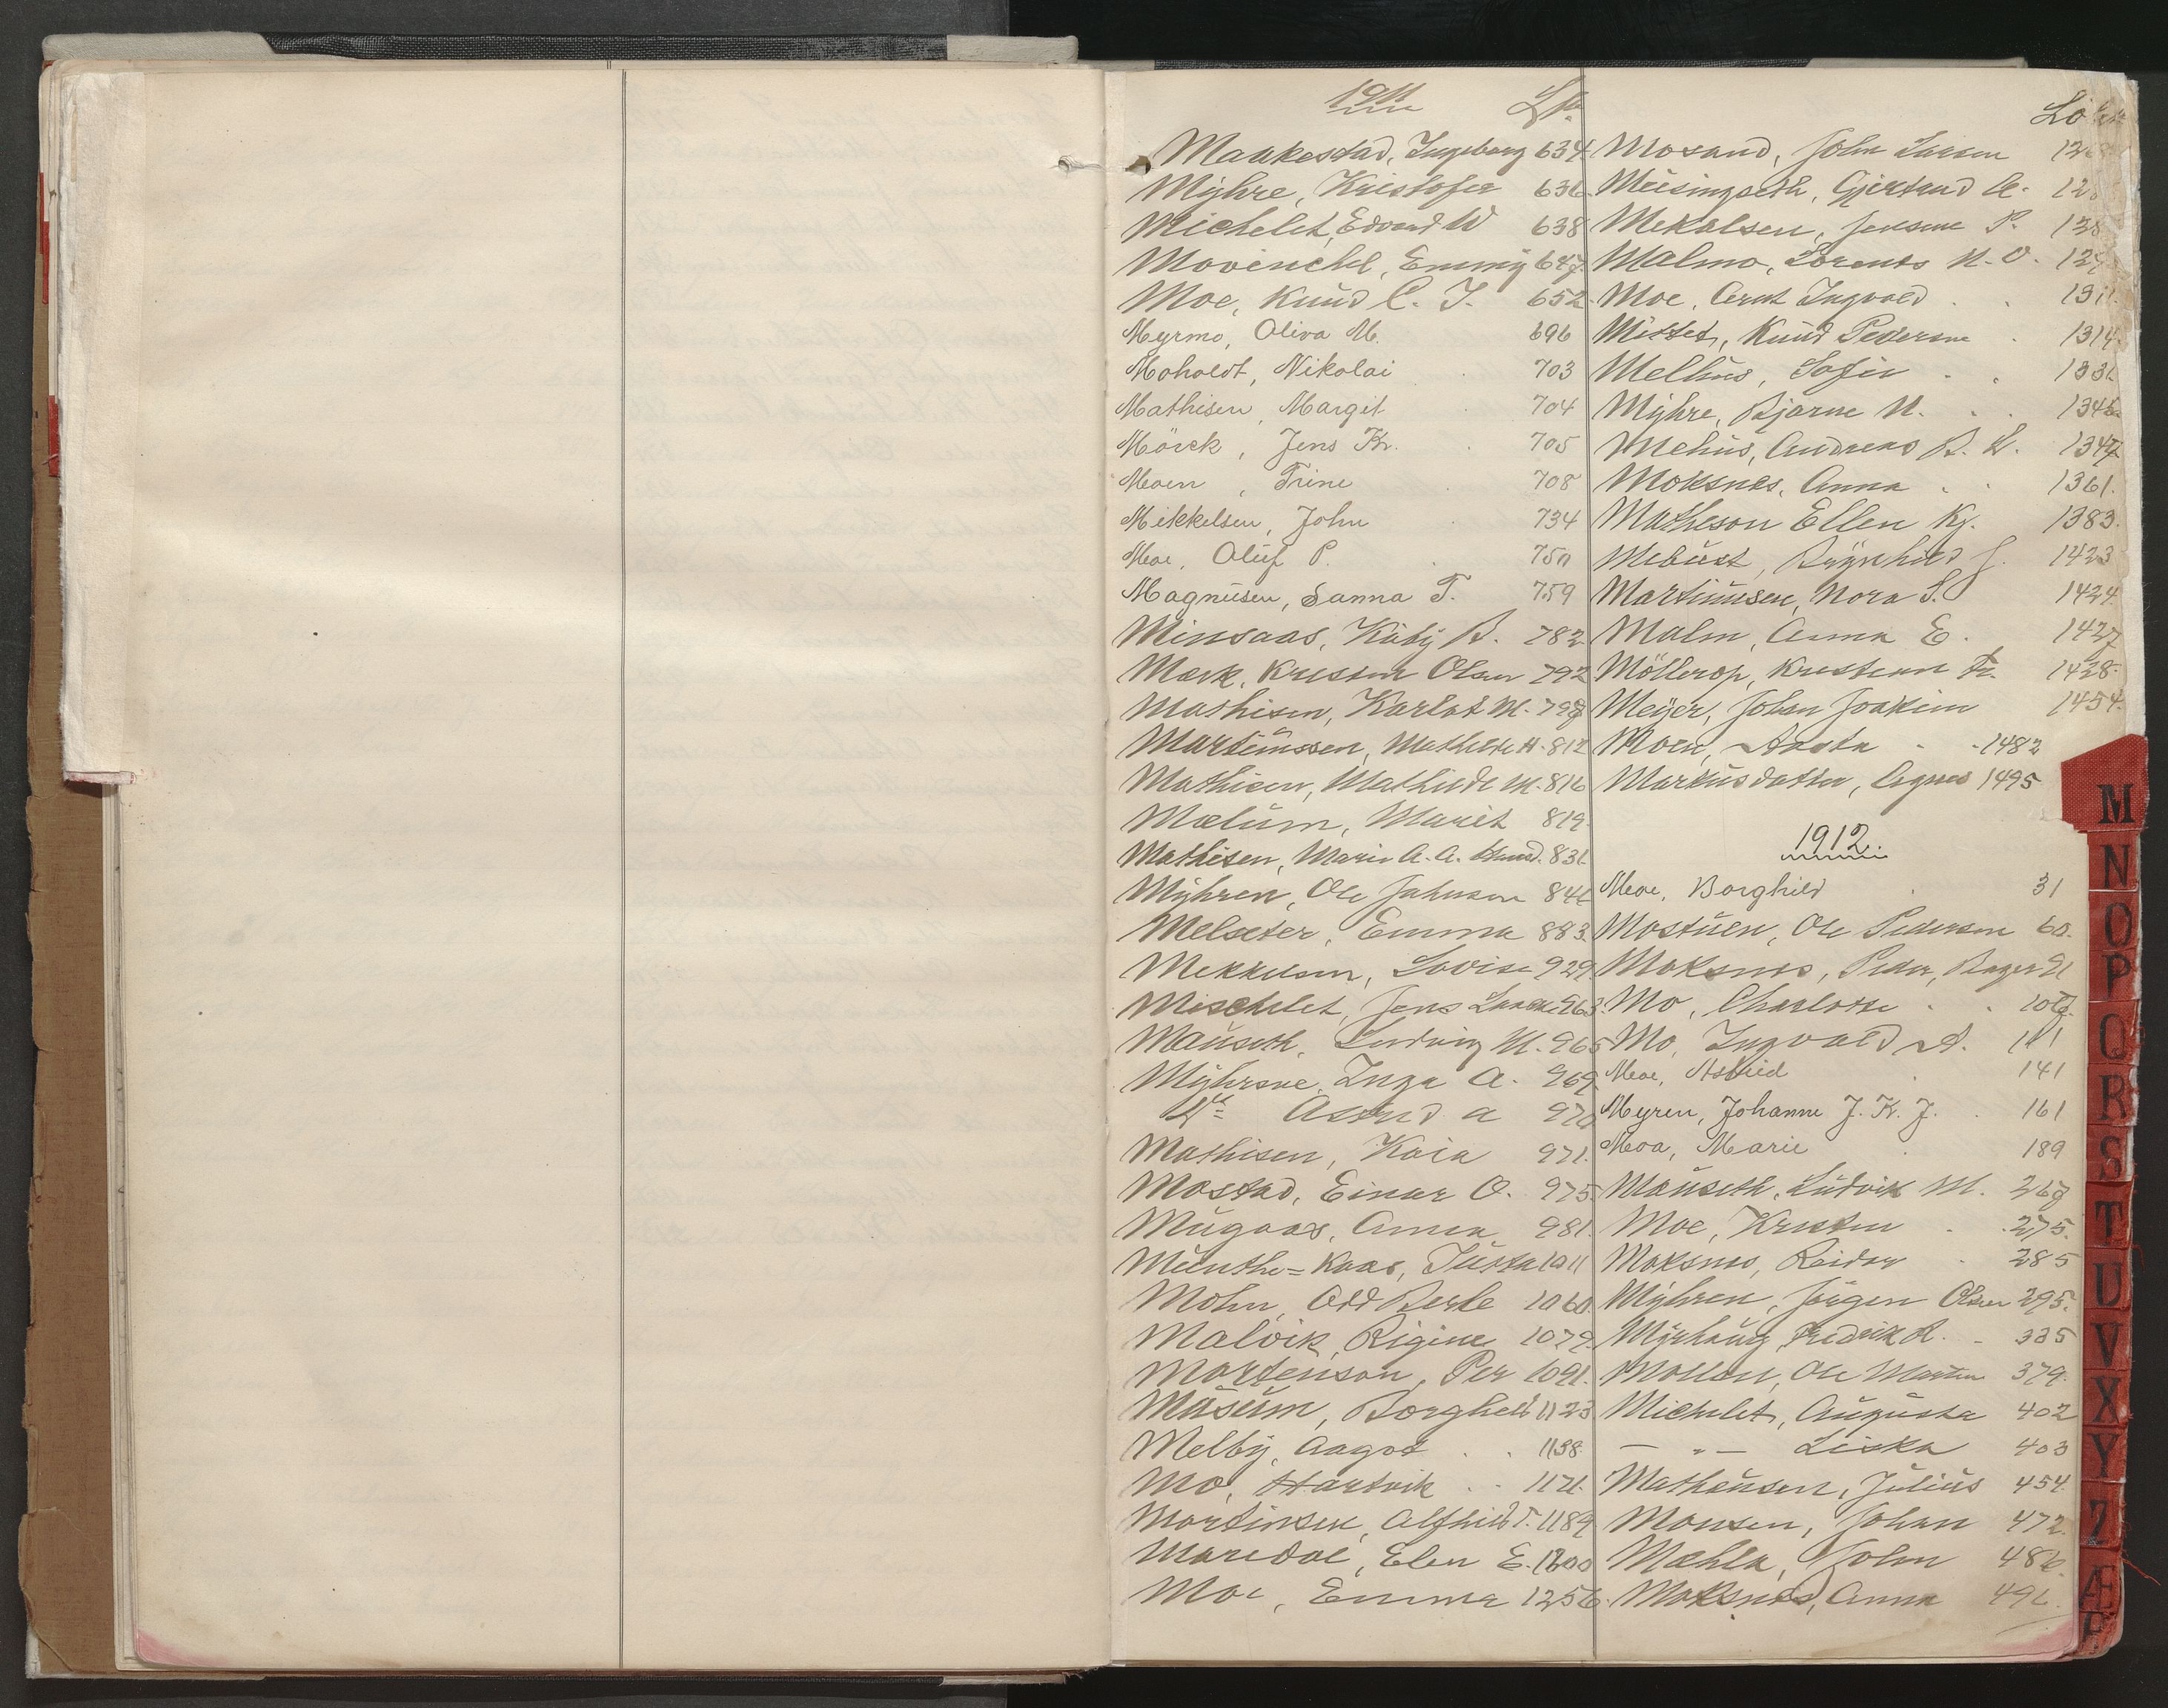 1911
Maakestad, Ingeborg 634
Myhre, Kristofer 636
Michelet, Edvard W 638
Movinchel, Emmy 647
Moe, Knud C. J. 652
Myrmo, Oliva M. 696
Moholdt, Nikolai 703
Mathisen, Margit 704
Mörck, Jens Kr. 705
Moen, Trine 708
Mikkelsen, John 734
Moe, Oluf P. 750
Magnusen, Sanna T. 759
Minsaas, Kitty B. 782
Mørk, Kristine Olsen 792
Mathisen, Karlot M. 798
Martinussen, Mathilde H. 812
Mathisen, Mathilde M. 816
Mælum, Marit 819
Mathisen, Marie A. A. 831
Myhren, Ole Johnsen 846
Melseter, Emma 883
Mekkelsen, Lovise 929
Mischelet, Jens 963
Mauseth, Ludvig M. 965
Myhrsve, Inga A. 969
Astrid A 970
Mathisen, Kaia 971.
Mostad, Einar O. 975
Mugaas, Anna 981.
Munthe=Kaas, Justa 1011
Mohn, Odd Berle 1060
Malvik, Rigine 1079
Mortenson, Per 1091.
Måsum, Borghild 1123
Melby, Aagot 1138
Mo, Hartvik 1171.
Martinsen, Alfhild T. 1189
Maredal, Elen E. 1200
Moe, Emma 1256
Mosand, John Larsen
Meisingseth, Gjertrud A.
Mekalsen, Jensine P.
Malmo, Lorents N. O.
Moe, Arnt Ingvald 1311.
Mittet, Knud Pedersen 1314.
Mellnes, Sofie 1331.
Myhre, Bjarne N. 1346
Mehus, Andreas B. K. 1347
Moksnes, Anna 1361.
Matheson Ellen Kj. 1383.
Mebust, Brynhild J. 1423
Martinusen, Nora S. 1424.
Malm, Anna E. 1427
Möllerop, Kristian Fr. 1428.
Meyer, Johan Joakim 1454.
Moen, Aasta 1482
Markusdatter, Agnes 1495
1912.
Moe, Borghild 31
Mostuen, Ole Pedersen 60.
Moksnes, Peder, Bager 91
Mo, Charlotte 107.
Mo, Ingvald A. 111
Moe, Astrid 141
Myren, Johanne J. K. J. 161
Moa, Marie 189
Mauseth, Ludvik M. 267
Moe, Kristen 275.
Moksnes, Reidar 285
Myhren, Jörgen Olsen 295.
Myrhaug, Fredrik A. 335
Mollan, Ole Martin 379.
Michelet, Augusta 402
— " — Liska 403
Matheusen, Julius 454.
Monsen, Johan 472.
Mæhla, John 486.
Moksnes, Anna 491.
M
N
O
P
Q
R
S
T
U
V
X
Y
Z
Æ